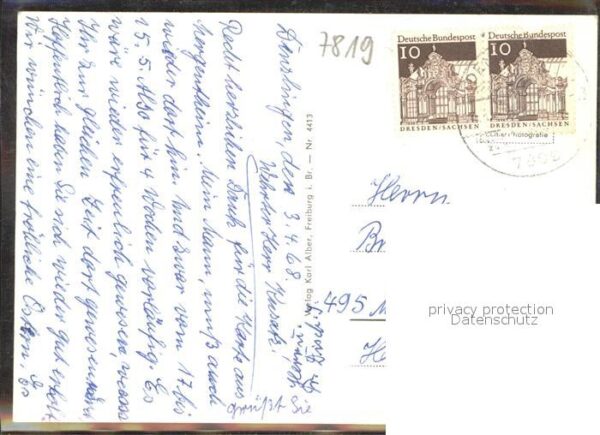 7819
Deutsche Bundespost
10
DRESDEN/SACHSEN
Deutsche Bundespost
10
DRESDEN/SACHSEN
Denzlingen, den 3.4.68
Recht herzlichen Dank für die Karte aus
Mergentheim. Mein Mann, muß auch
wieder dort hin. Und zwar vom 17. bis
15.5. Also für 4 Wochen vorläufig. Es
wäre wieder erfreulich gewesen, wenn
zur gleichen Zeit dort gewesen
Hoffentlich haben Sie sich wieder gut erholt
Wir wünschen eine fröhliche Ostern, Es
grüßt Sie
Verlag Karl Alber, Freiburg i. Br. — Nr 4413
Herrn
Br
495 M
He
privacy protection
Datenschutz